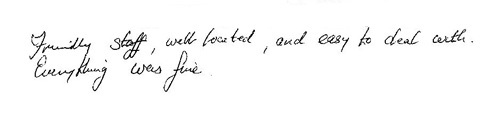 Friendly staff, well located, and easy to deal with.
Everything was fine.